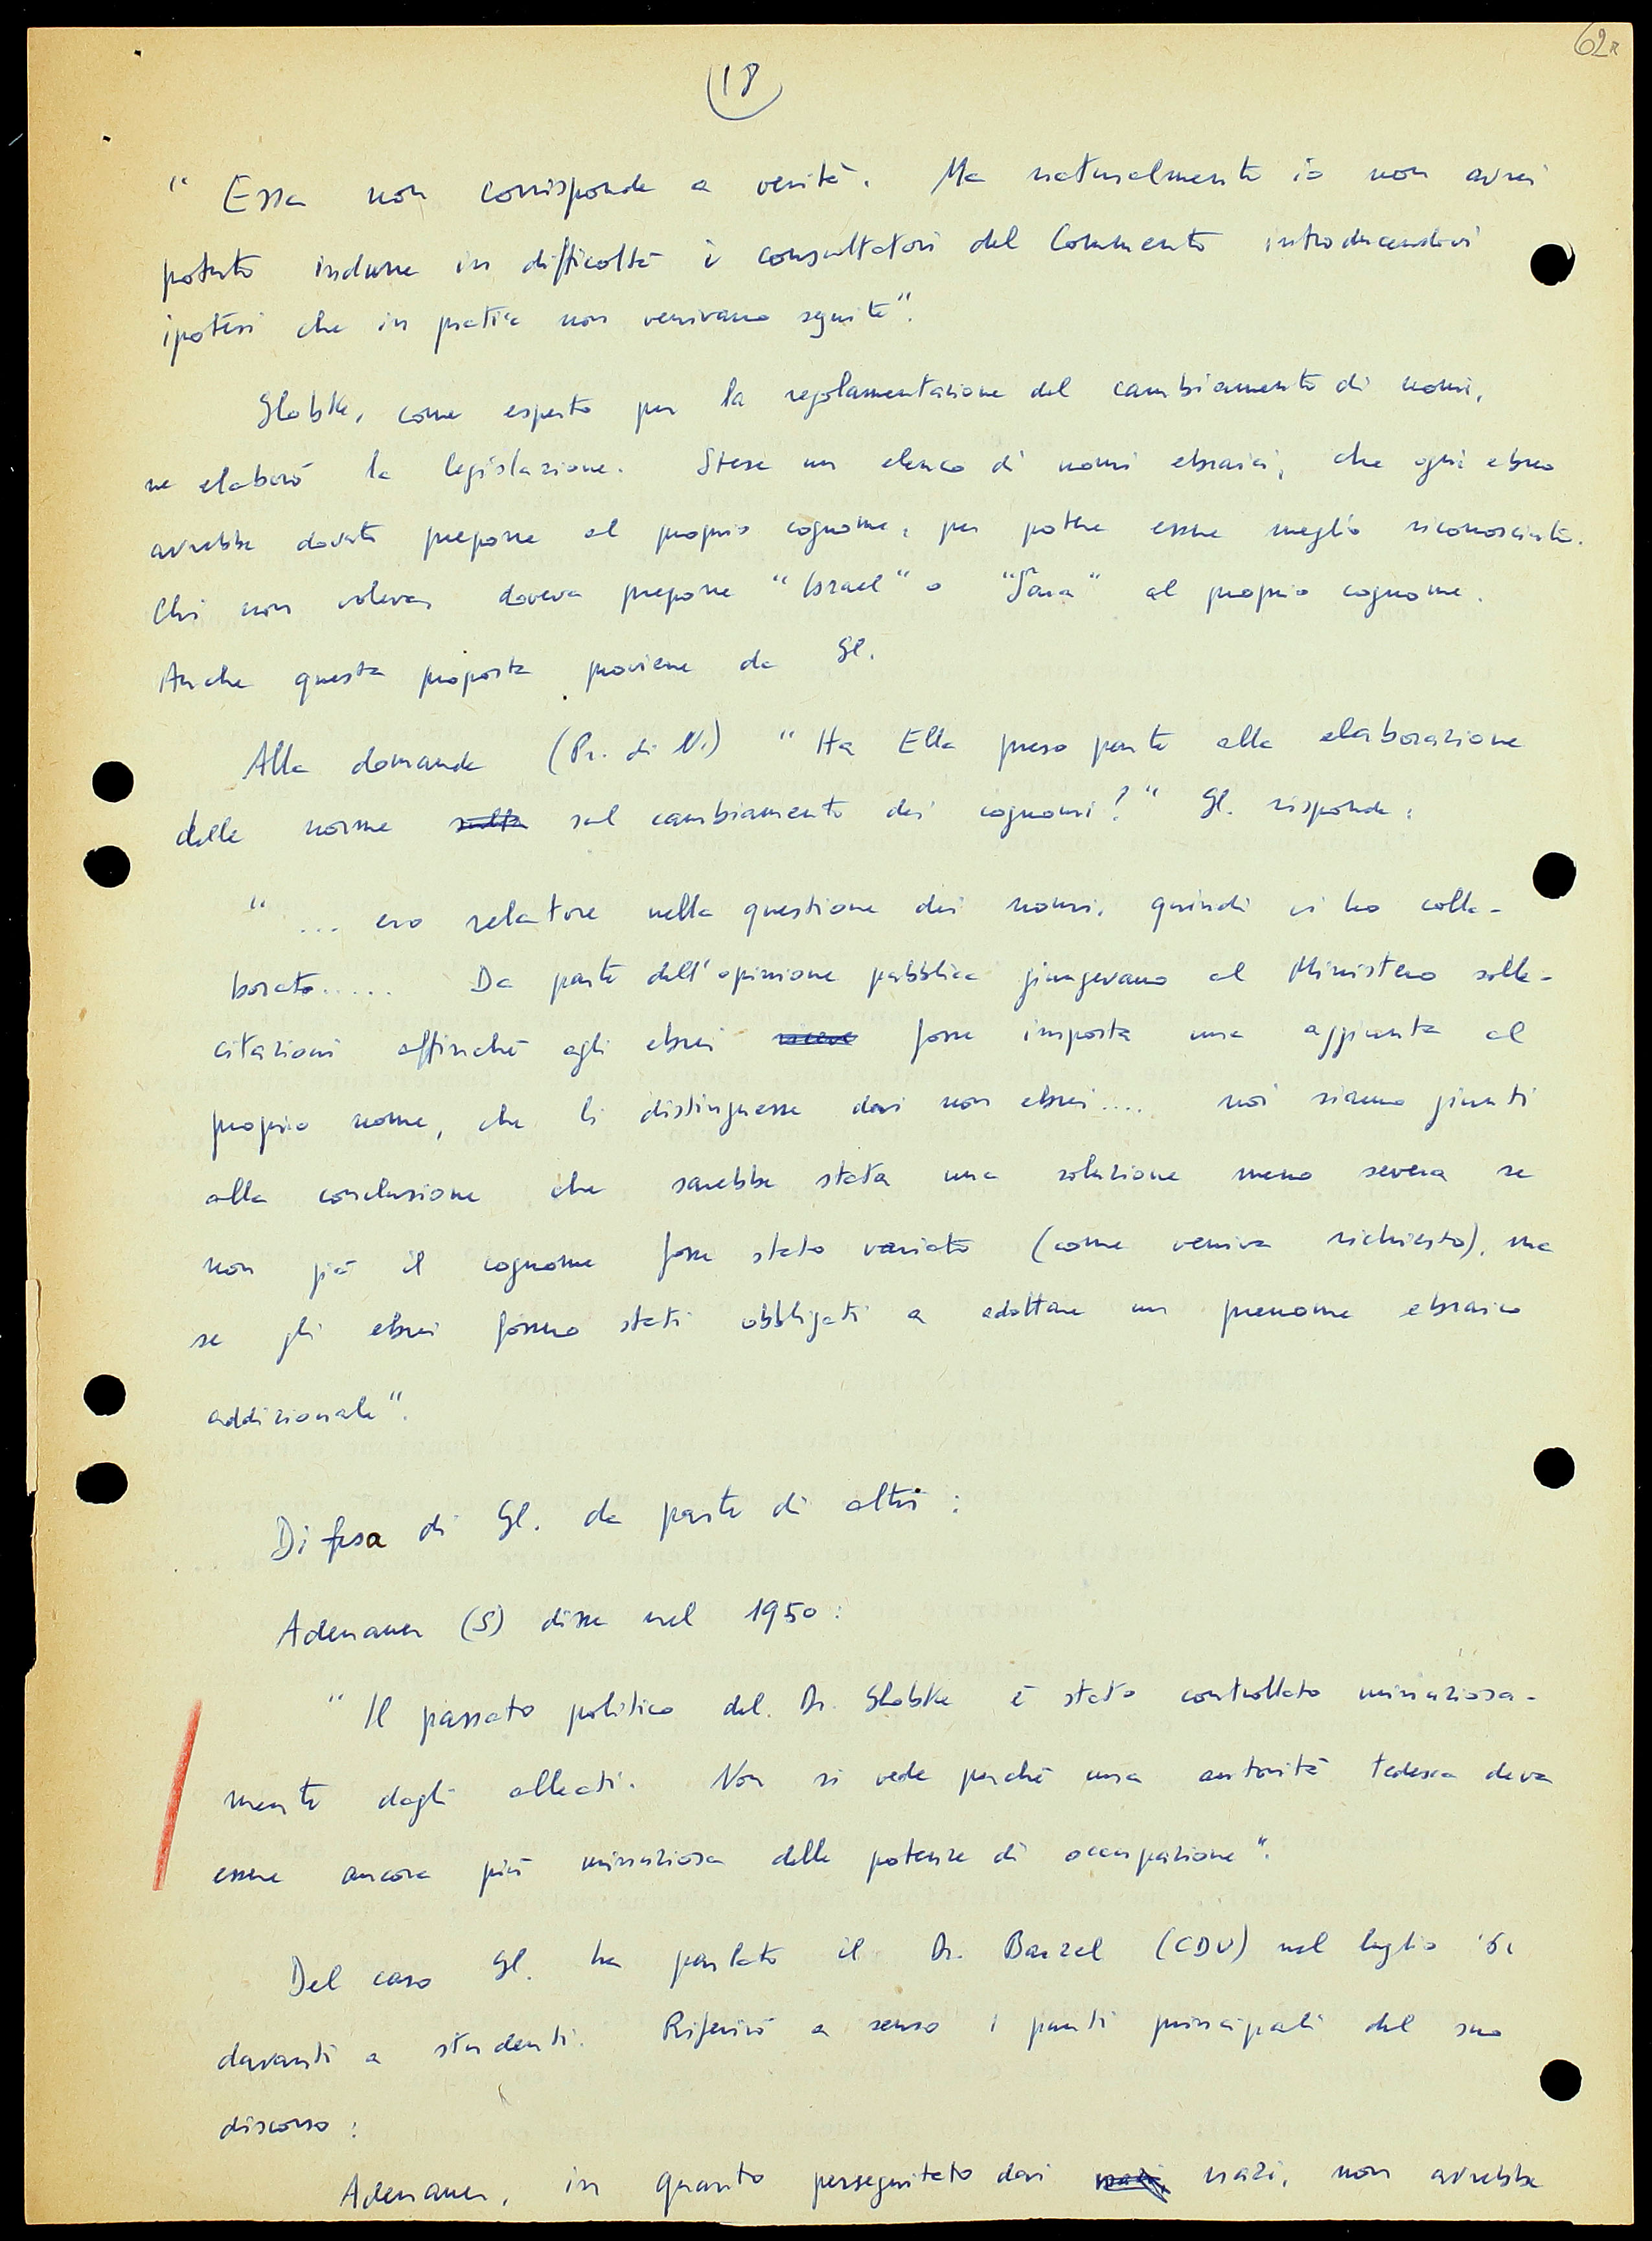 62R
18
" Essa non corrisponde a verità. Ma naturalmente io non avrei
potuto indurre in difficoltà i consultatori del Commento introducendovi
ipotesi che in pratica non venivano seguite".
Globke, come esperto per la regolamentazione del cambiamento di nomi,
ne elaborò la legislazione. Stese un elenco di nomi ebraici, che ogni ebreo
avrebbe dovuto preporre al proprio cognome, per potere essere meglio riconosciuto.
Chi non voleva doveva preporre "Israel" o "Sara" al proprio cognome.
Anche questa proposta proviene da Gl.
Alla domanda (Pr. di N.) " Ha Ella preso parte alla elaborazione
delle norme sulla sul cambiamento dei cognomi?" Gl. risponde:
" ... ero relatore nella questione dei nomi, quindi vi ho colla-
borato..... Da parte dell'opinione pubblica giungevano al Ministero solle-
citazioni affinché agli ebrei fosse imposta una aggiunta al
proprio nome, che li distinguesse dai non ebrei.... noi siamo giunti
alla conclusione che sarebbe stata una soluzione meno severa se
non già il cognome fosse stato variato (come veniva richiesto), ma
se gli ebrei fossero stati obbligati a adottare un prenome ebraico
addizionale".
Difesa di Gl. da parte di altri:
Adenauer (S) disse nel 1950:
" Il passato politico del Dr. Globke è stato controllato minuziosa-
mente dagli alleati. Non si vede perché una autorità tedesca deva
essere ancora più minuziosa delle potenze di occupazione".
Del caso Gl. ha parlato il Dr. Barzel (CDU) nel luglio '61
davanti a studenti. Riferirò a senso i punti principali del suo
discorso:
Adenauer, in quanto perseguitato dai nazi, nazi, non avrebbe